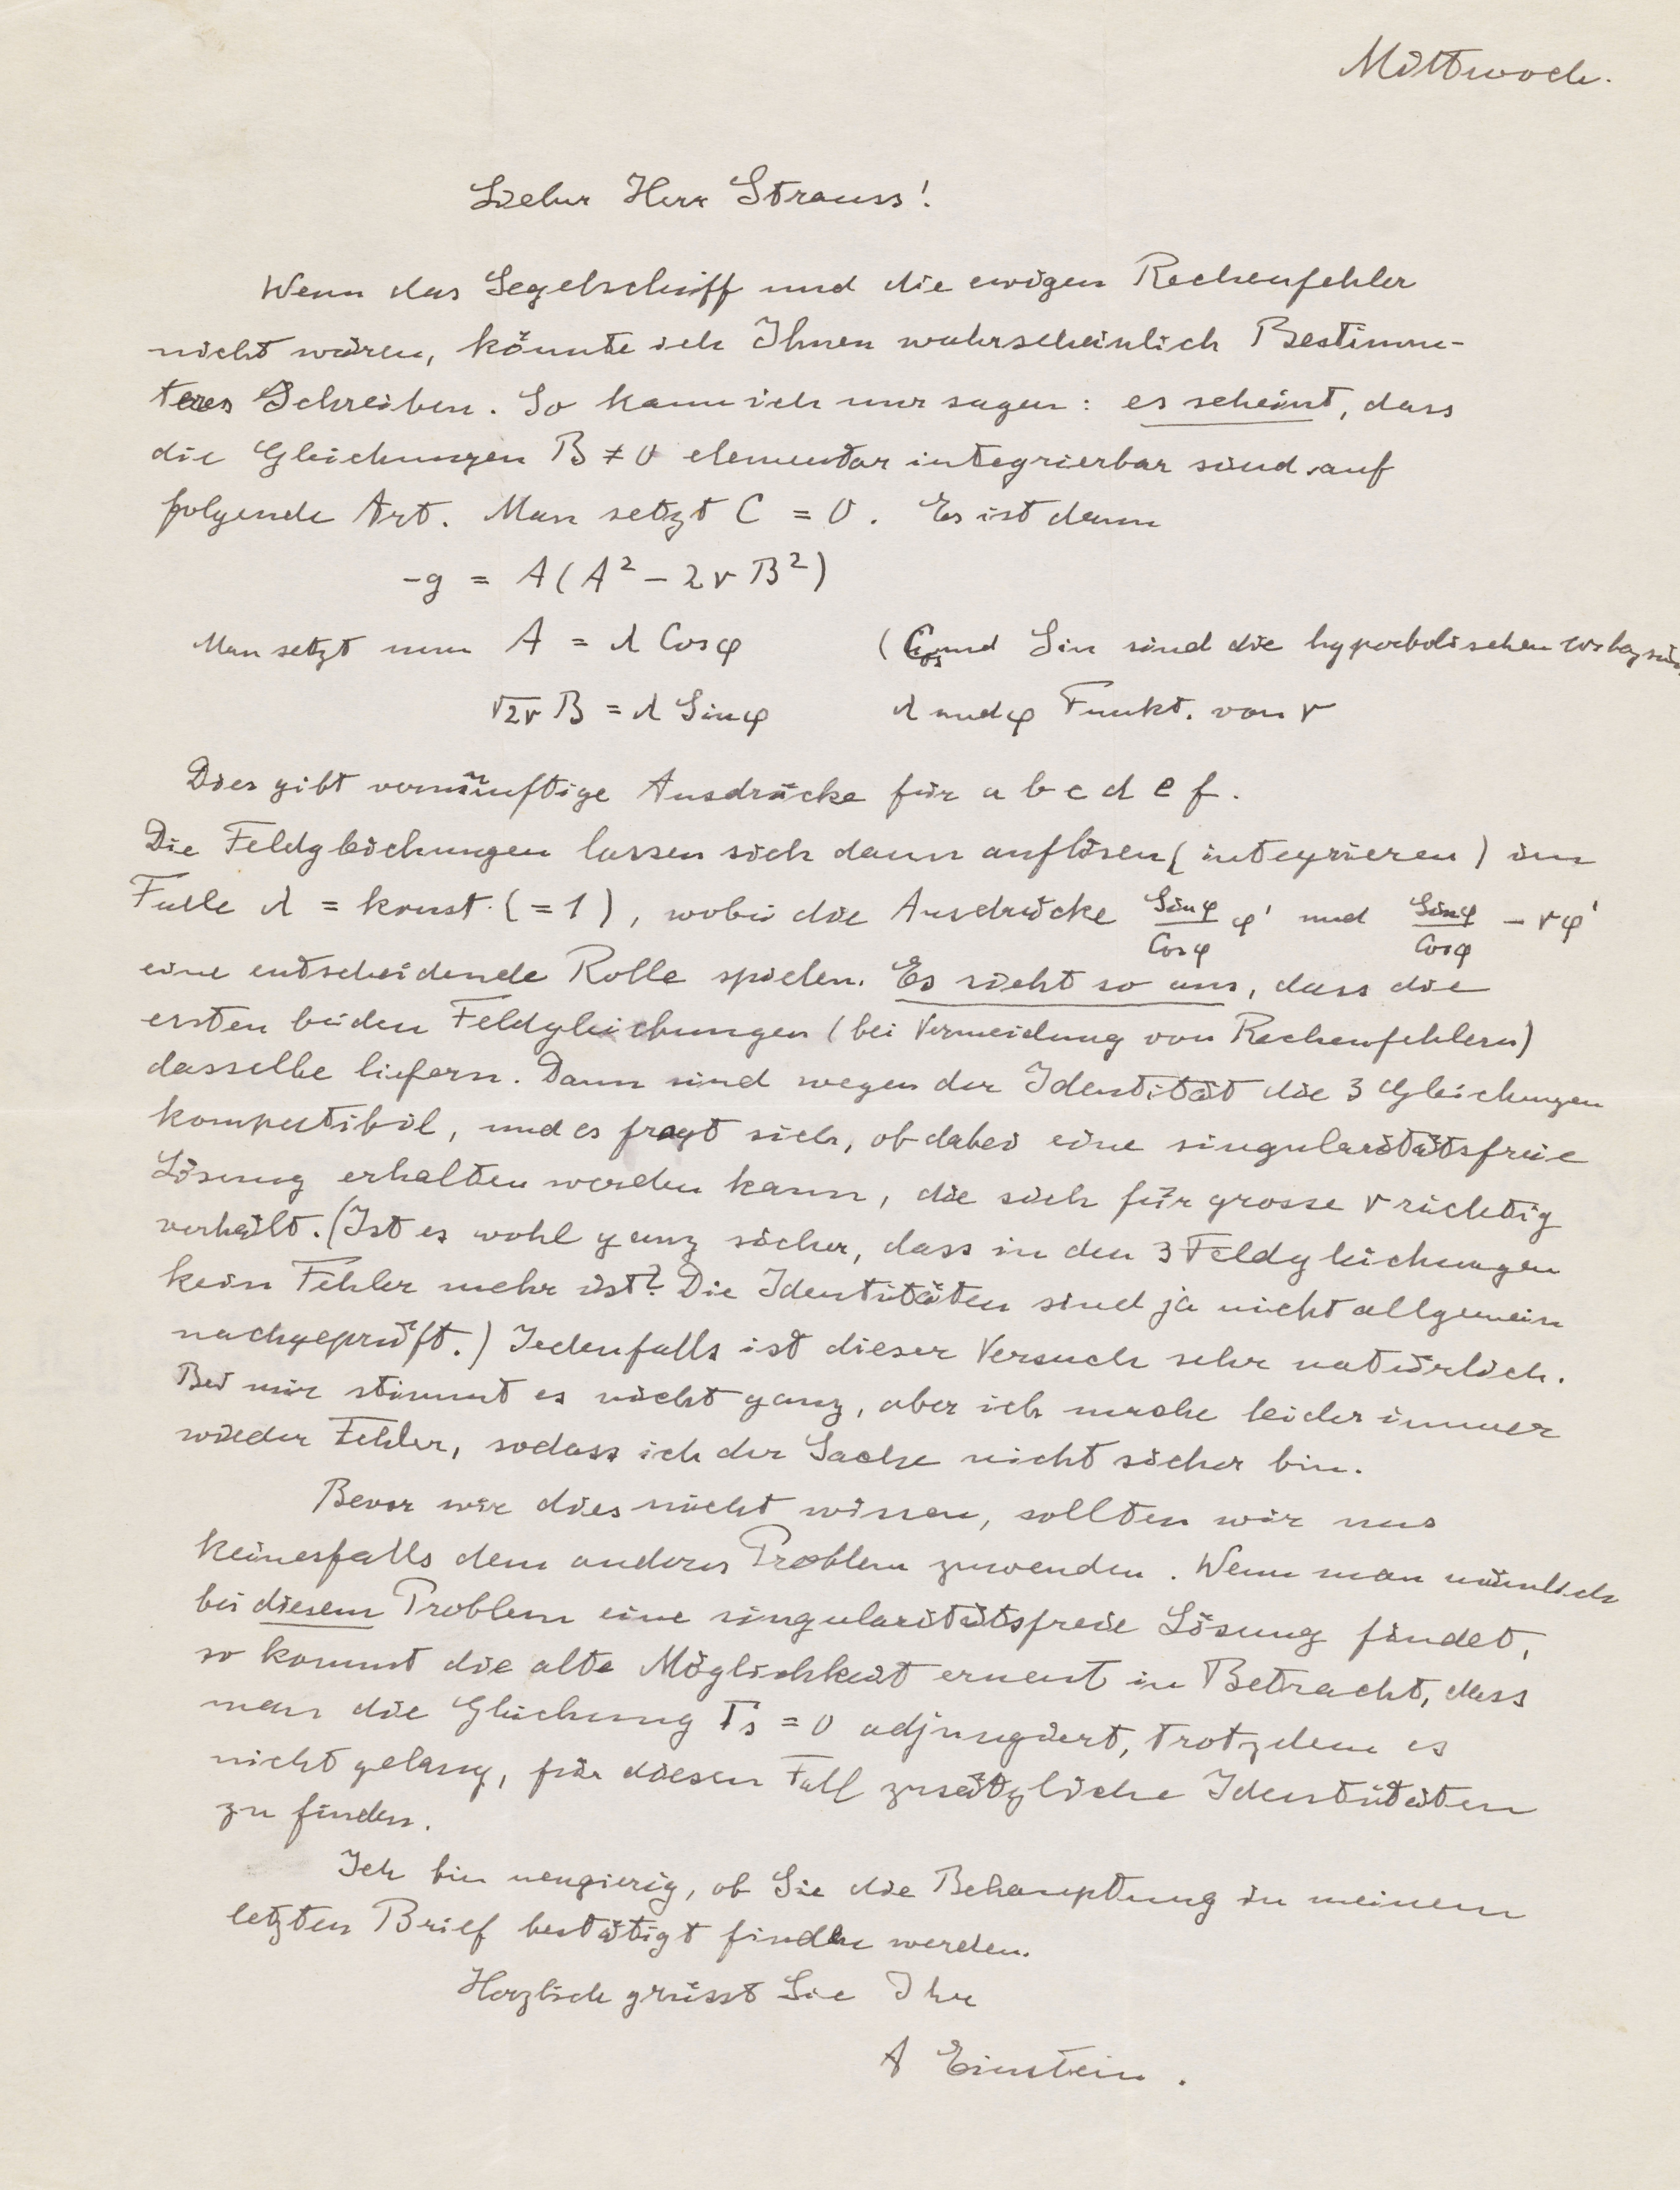 Mittwoch.
Lieber Herr Strauss!
Wenn das Segelschiff und die ewigen Rechenfehler
nicht wären, könnte ich Ihnen wahrscheinlich Bestimm-
teres Schreiben. So kann ich nur sagen: es scheint, dass
die Gleichungen B ≠ 0 elementar integrierbar sind auf
folgende Art. Man setzt C = 0. Es ist dann
-g = A(A² - 2rB²)
Man setzt nun A = λ Cosφ (Cos und Sin sind die hyperbolischen
√2r B = λ Sinφ λ und φ Funkt. von r
Dies gibt vernünftige Ausdrücke für a b c d e f.
Die Feldgleichungen lassen sich dann auflösen (integrieren) im
Falle λ = konst. (=1), wobei die Ausdrücke Sinφ/Cosφ φ' und Sinφ/Cosφ - rφ'
eine entscheidende Rolle spielen. Es sieht so aus, dass die
ersten beiden Feldgleichungen (bei Vermeidung von Rechenfehlern)
dasselbe liefern. Dann sind wegen der Identität die 3 Gleichungen
kompatibil, und es fragt sich, ob dabei eine singularitätsfreie
Lösung erhalten werden kann, die sich für grosse r richtig
verhält. (Ist es wohl ganz sicher, dass in den 3 Feldgleichungen
kein Fehler mehr ist? Die Identitäten sind ja nicht allgemein
nachgeprüft.) Jedenfalls ist dieser Versuch sehr natürlich.
Bei mir stimmt es nicht ganz, aber ich mache leider immer
wieder Fehler, sodass ich der Sache nicht sicher bin.
Bevor wir dies nicht wissen, sollten wir uns
keinesfalls dem anderen Problem zuwenden. Wenn man nämlich
bei diesem Problem eine singularitätsfreie Lösung findet,
so kommt die alte Möglichkeit erneut in Betracht, dass
man die Gleichung Γs = 0 adjungiert, trotzdem es
nicht gelang, für diesen Fall zusätzliche Identitäten
zu finden.
Ich bin neugierig, ob Sie die Behauptung in meinem
letzten Brief bestätigt finden werden.
Herzlich grüsst Sie Ihr
A Einstein.